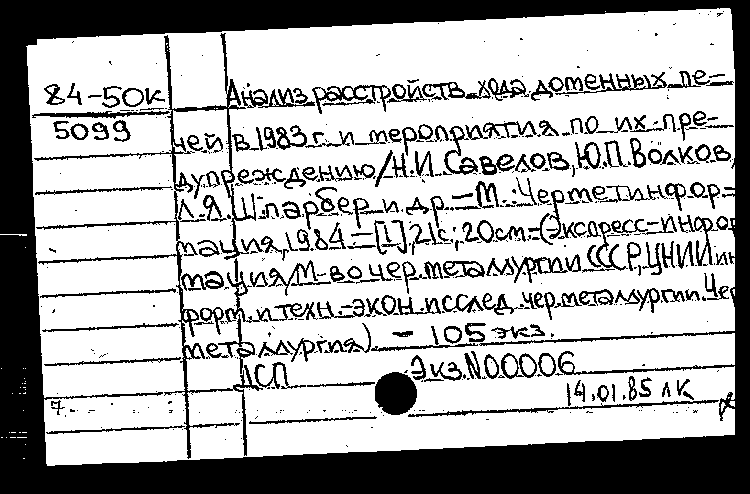 84-50К Анализ расстройств хода доменных пе-
5099 чей в 1983 г. и мероприятия по их пре-
дупреждению/Н.И.Савелов, Ю.П.Волков,
Л.Я.Шпарбер и др.-М.:Черметинфор-
мация,1984.-[I],21с;20см-(Экспресс-инфор
мация/М-во чер.металлургии СССР,ЦНИИ ин
форм. и техн.-экон.исслед.чер.металлургии.Чер
металлургия) - 105 экз.
ДСП Экз.N00006
7. 14.01.85 лк